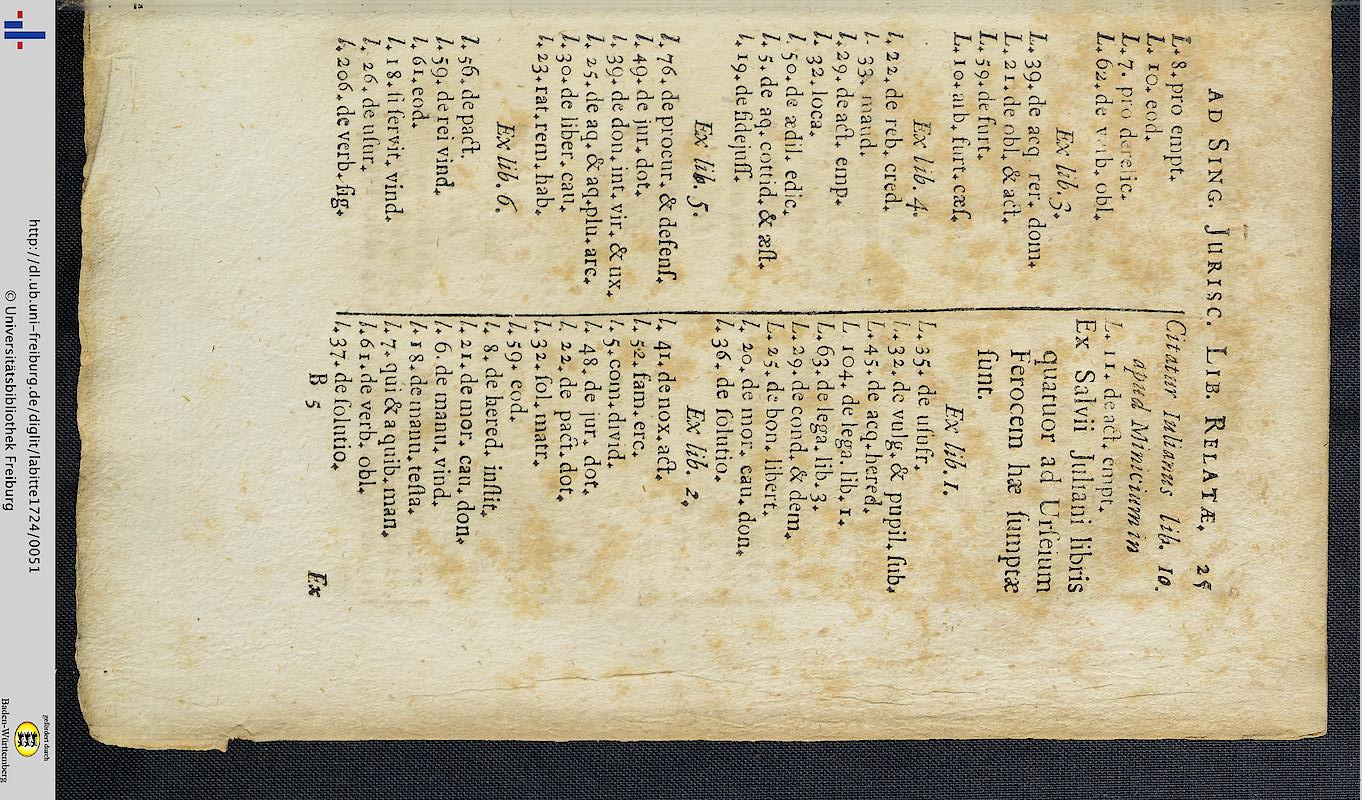 AD SING. JURISC. LIB. RELATÆ. 25
L. 8. pro empt.
L. 10. eod.
L. 7. pro derelic.
L. 62. de verb. obl.
Ex lib. 3.
L. 39. de acq. rer. dom.
L. 21. de obl. & act.
L. 59. de furt.
L. 10. arb. furt. cæſ.
Ex lib. 4.
l. 22. de reb. cred.
l. 33. mand.
l. 29. de act. emp.
l. 32. loca.
l. 50. de ædil. edic.
l. 5. de aq. cottid. & æſt.
l. 19. de fidejuſſ.
Ex lib. 5.
l. 76. de procur. & defenſ.
l. 49. de jur. dot.
l. 39. de don. int. vir. & ux.
l. 25. de aq. & aq. plu. arc.
l. 30. de liber. cau.
l. 23. rat. rem. hab.
Ex lib. 6.
l. 56. de pact.
l. 59. de rei vind.
l. 61. eod.
l. 18. ſi ſervit. vind.
l. 26. de uſur.
l. 206. de verb. ſig.
Citatur Iulianus lib. 10.
apud Minicium in
L. 11. de act. empt.
Ex Salvii Juliani libris
quatuor ad Urſeium
Ferocem hæ ſumptæ
ſunt.
Ex lib. 1.
L. 35. de uſufr.
l. 32. de vulg. & pupil. ſub.
L. 45. de acq. hered.
l. 104. de lega. lib. 1.
L. 63. de lega. lib. 3.
L. 29. de cond. & dem.
L. 25. de bon. libert.
l. 20. de mor. cau. don.
l. 36. de ſolutio.
Ex lib. 2.
l. 41. de nox. act.
l. 52. fam. erc.
l. 5. com. divid.
l. 48. de jur. dot.
l. 22. de pact. dot.
l. 32. ſol. matr.
l. 59. eod.
l. 8. de hered. inſtit.
l. 21. de mor. cau. don.
l. 6. de manu. vind.
l. 18. de manu. teſta.
l. 7. qui & a quib. man.
l. 61. de verb. obl.
l. 37. de ſolutio.
B 5
Ex
http://dl.ub.uni-freiburg.de/diglit/labitte1724/0051
© Universitätsbibliothek Freiburg
gefördert durch
Baden-Württemberg